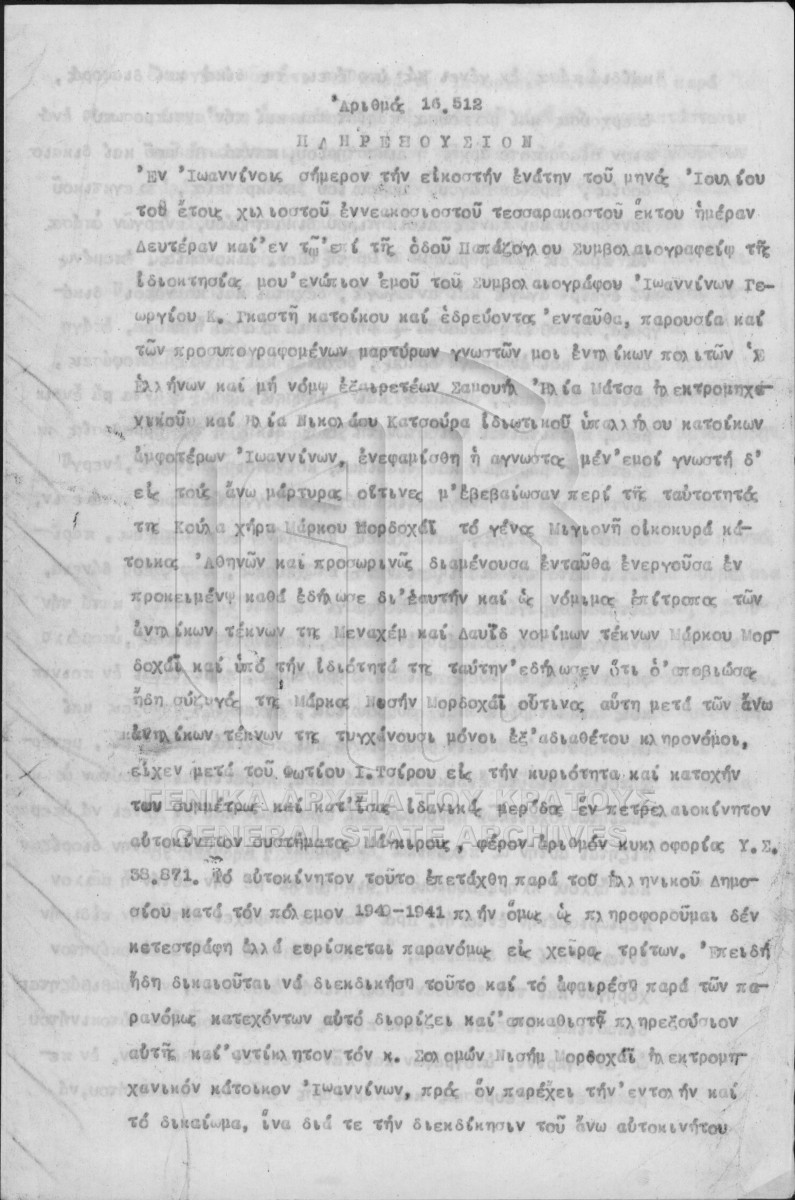 Ἀριθμός 16.512
ΠΛΗΡΕΞΟΥΣΙΟΝ
Ἐν Ἰωαννίνοις σήμερον τήν εἰκοστήν ἐνάτην τοῦ μηνός Ἰουλίου
τοῦ ἔτους χιλιοστοῦ ἐννεακοσιοστοῦ τεσσαρακοστοῦ ἕκτου ἡμέραν
Δευτέραν καί ἐν τῷ ἐπί τῆς ὁδοῦ Παπάζογλου Συμβολαιογραφείῳ τῆς
ἰδιοκτησίας μου ἐνώπιον ἐμοῦ τοῦ Συμβολαιογράφου Ἰωαννίνων Γε-
ωργίου Κ. Γκαστῆ κατοίκου καί ἑδρεύοντος ἐνταῦθα, παρουσία καί
τῶν προσυπογραφομένων μαρτύρων γνωστῶν μοι ἐνηλίκων πολιτῶν Ἑ
Ἑλλήνων καί μή νόμῳ ἐξαιρετέων Σαμουήλ Ἠλία Μάτσα ἠλεκτρομηχα-
νικοῦυ καί Ἠλία Νικολάου Κατσούρα ἰδιωτικοῦ ὑπαλλήλου κατοίκων
ἀμφοτέρων Ἰωαννίνων, ἐνεφανίσθη ἡ ἄγνωστος μέν ἐμοί γνωστή δ'
εἰς τούς ἄνω μάρτυρας οἵτινες μ'ἐβεβαίωσαν περί τῆς ταὐτοτητός
της Κούλα χήρα Μάρκου Μορδοχάϊ τό γένος Μιγιονῆ οἰκοκυρά κά-
τοικος Ἀθηνῶν καί προσωρινῶς διαμένουσα ἐνταῦθα ἐνεργοῦσα ἐν
προκειμένῳ καθά ἐδήλωσε δι'ἑαυτήν καί ὡς νόμιμος ἐπίτροπος τῶν
ἀνηλίκων τέκνων της Μεναχέμ καί Δαυΐδ νομίμων τέκνων Μάρκου Μορ-
δοχάϊ καί ὑπό τήν ἰδιότητά της ταύτην ἐδήλωσεν ὅτι ὁ ἀποβιώσας
ἤδη σύζυγός της Μάρκος Νισήν Μορδοχάϊ οὗτινος αὕτη μετά τῶν ἄνω
ἀνηλίκων τέκνων της τυγχάνουσι μόνοι ἐξ ἀδιαθέτου κληρονόμοι,
εἶχεν μετά τοῦ Φωτίου Ι. Τσίρου εἰς τήν κυριότητα καί κατοχήν
των συμμέτρως καί κατ'ἴσας ἰδανικάς μερίδας ἕν πετρελαιοκίνητον
αὐτοκίνητον συστήματος Μάγκιρους, φέρον ἀριθμόν κυκλοφορίας Υ.Σ.
38.871. Τό αὐτοκίνητον τοῦτο ἐπετάχθη παρά τοῦ Ἑλληνικοῦ Δημο-
σίου κατά τόν πόλεμον 1940-1941 πλήν ὅμως ὡς πληροφοροῦμαι δέν
κατεστράφη ἀλλά εὑρίσκεται παρανόμως εἰς χεῖρας τρίτων. Ἐπειδή
ἤδη δικαιοῦται νά διεκδικήσῃ τοῦτο καί τό ἀφαιρέσῃ παρά τῶν πα-
ρανόμως κατεχόντων αὐτό διορίζει καί ἀποκαθιστᾷ πληρεξούσιον
αὐτῆς καί ἀντίκλητον τόν κ. Σολομών Νισήμ Μορδοχάϊ ἠλεκτρομη-
χανικόν κάτοικον Ἰωαννίνων, πρός ὅν παρέχει τήν ἐντολήν καί
τό δικαίωμα, ἵνα διά τε τήν διεκδίκησιν τοῦ ἄνω αὐτοκινήτου
ΓΕΝΙΚΑ ΑΡΧΕΙΑ ΤΟΥ ΚΡΑΤΟΥΣ
GENERAL STATE ARCHIVES